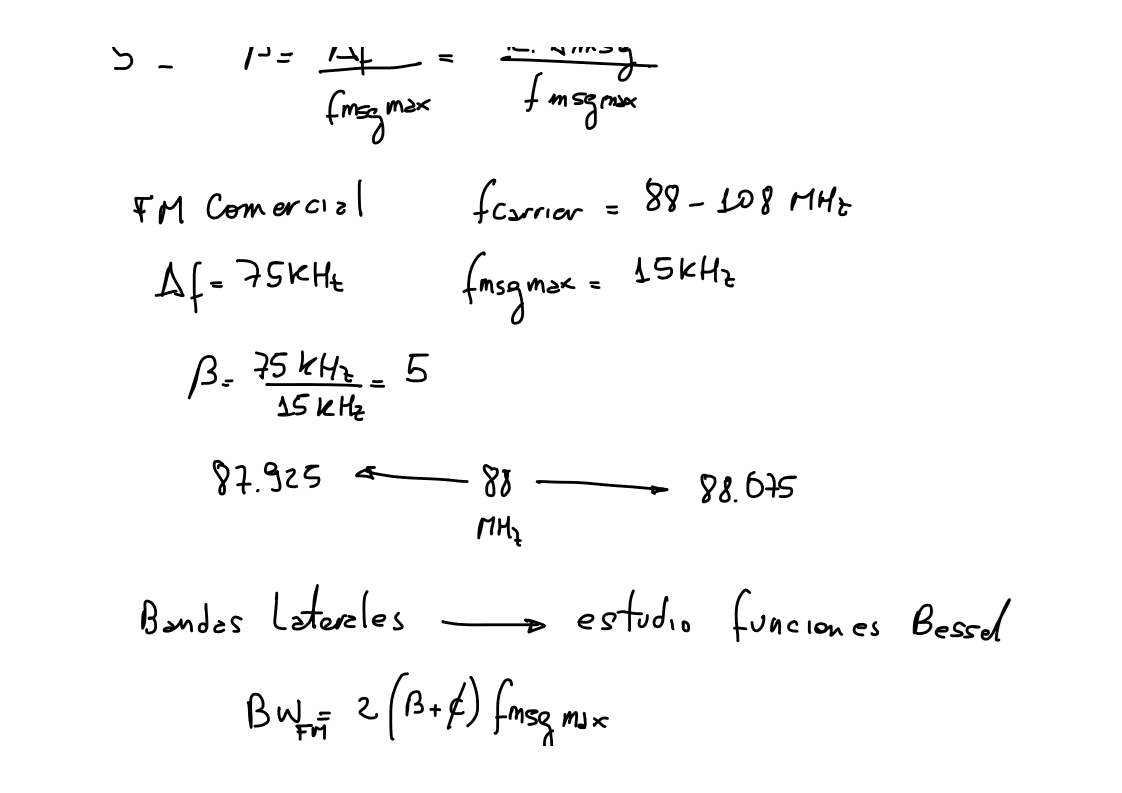 β = Δf / fmsgmax = / fmsgmax
FM Comercial fcarrier = 88 - 108 MHz
Δf = 75 kHz fmsgmax = 15 kHz
β = 75 kHz / 15 kHz = 5
87.925 ← 88 MHz → 88.075
Bandas Laterales → estudio funciones Bessel
BW FM = 2 (β + ₵) fmsgmax